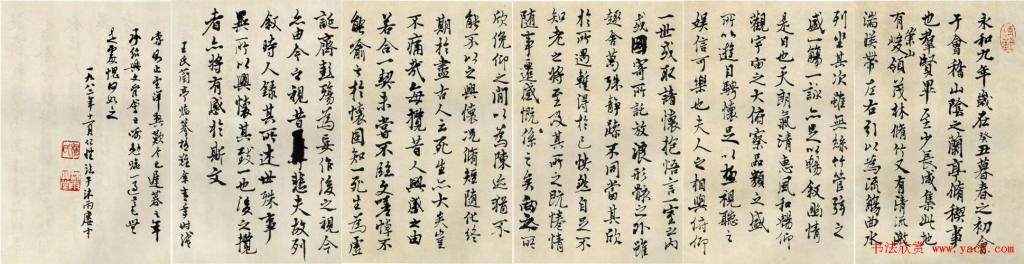 永和九年歲在癸丑暮春之初會
于會稽山陰之蘭亭脩稧事
也羣賢畢至少長咸集此地
有崇山峻領茂林脩竹又有清流激
湍暎帶左右引以為流觴曲水
列坐其次雖無絲竹管弦之
盛一觴一詠亦足以暢敘幽情
是日也天朗氣清惠風和暢仰
觀宇宙之大俯察品類之盛
所以遊目騁懷足以極視聽之
娛信可樂也夫人之相與俯仰
一世或取諸懷抱悟言一室之內
或因寄所託放浪形骸之外雖
趣舍萬殊靜躁不同當其欣
於所遇蹔得於己怏然自足不
知老之將至及其所之既惓情
隨事遷感慨係之矣向之所
欣俛仰之閒以為陳迹猶不
能不以之興懷況脩短隨化終
期於盡古人云死生亦大矣豈
不痛哉每攬昔人興感之由
若合一契未嘗不臨文嗟悼不
能喻之於懷固知一死生為虛
誕齊彭殤為妄作後之視今
亦由今之視昔悲夫故列
敘時人錄其所述雖世殊事
異所以興懷其致一也後之攬
者亦將有感於斯文
一九八三年十一月
书法欣赏 www.yac8.com